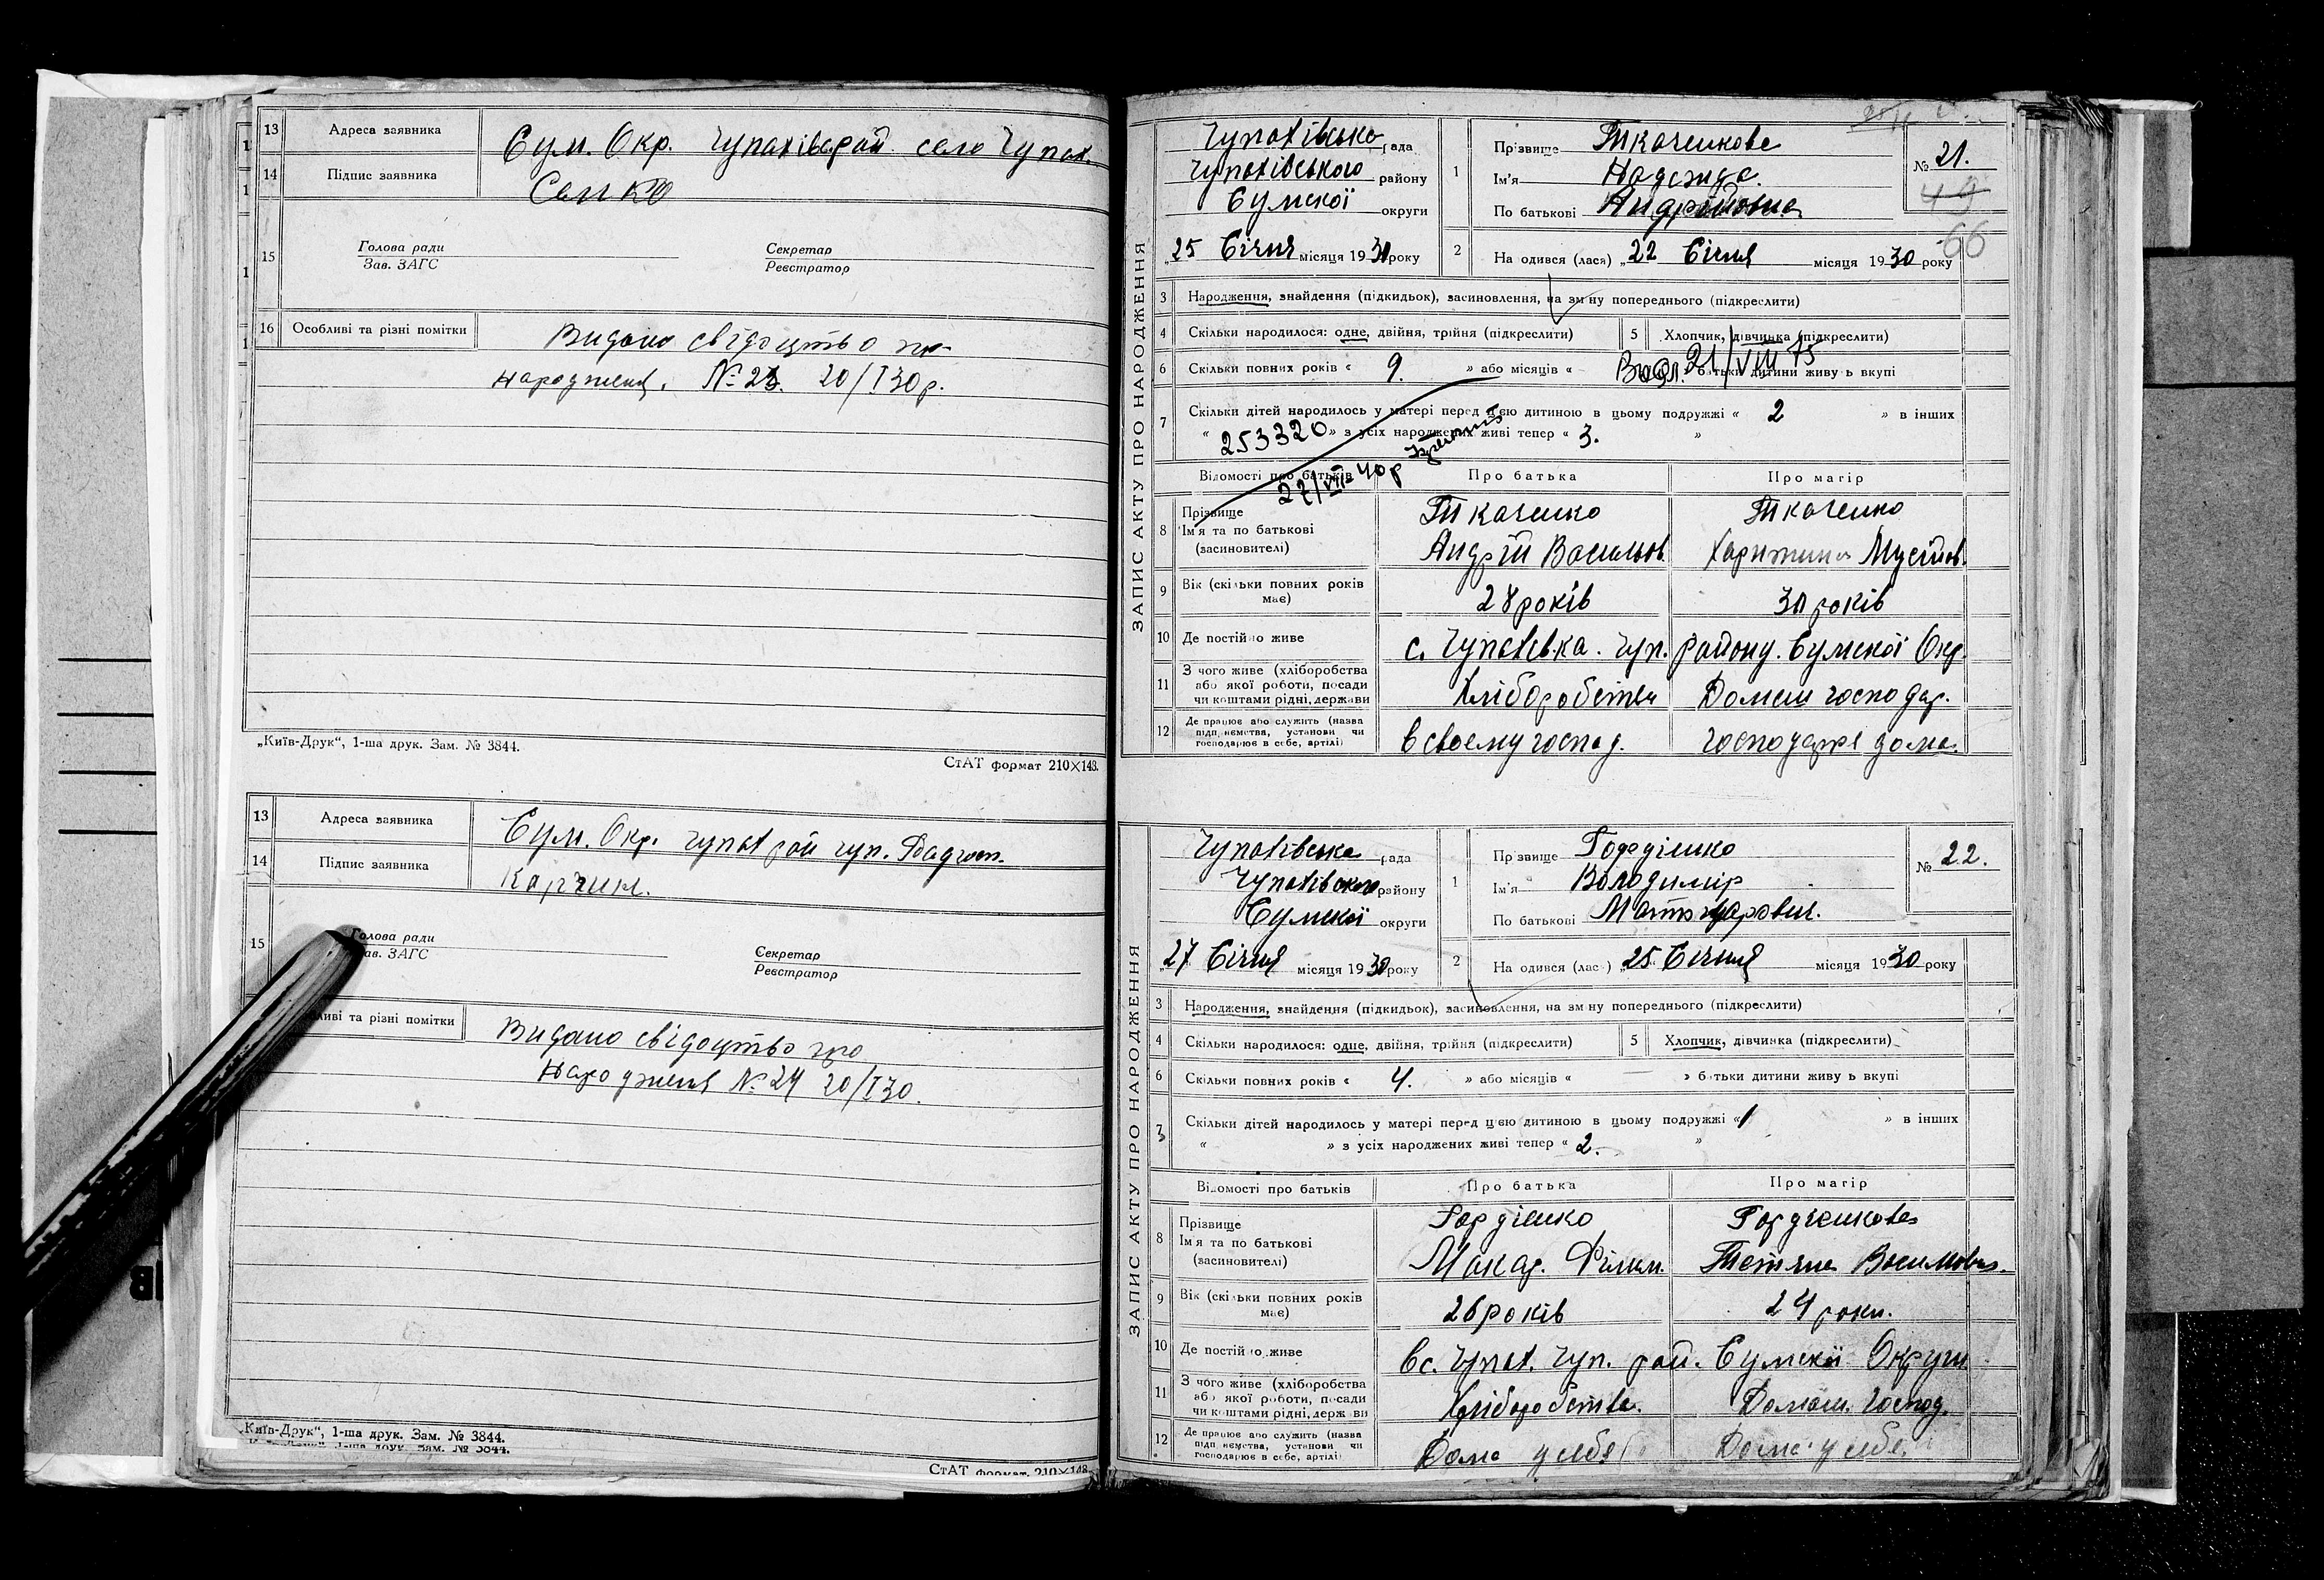 13 Адреса заявника Сум. Окр. Чупахівс. рай. село Чупах.
14 Підпис заявника
15 Голова ради Секретар
Зав. ЗАГС Реєстратор
16 Особливі та різні помітки Видано свідоцтво про
народженя. № 23. 20/I 30 р.
„Київ-Друк“, 1-ша друк. Зам. № 3844.
СтАТ формат 210×148.
13 Адреса заявника Сум. Окр. Чупах рай чуп.
14 Підпис заявника
15 Голова ради Секретар
Зав. ЗАГС Реєстратор
ливі та різні помітки Видано свідоцтво про
народженя № 24 20/I 30.
„Київ-Друк“, 1-ша друк. Зам. № 3844.
СтАТ формат 210×148
ЗАПИС АКТУ ПРО НАРОДЖЕННЯ
Чупахівська рада
Чупахівського району
Сумської округи
„25 Січня місяця 1930 року
1 Прізвище Ткаченкова
Ім'я Надежда.
По батькові Андрійовна
№ 21.
49
66
2 На одився (лася) „22 Січня місяця 1930 року
3 Народження, знайдення (підкидьок), засиновлення, на зм ну попереднього (підкреслити)
4 Скільки народилося: одне, двійня, трійня (підкреслити) 5 Хлопчик, дівчинка (підкреслити)
21/VIII 75
6 Скільки повних років « 9. » або місяців « батьки дитини живу ь вкупі
7 Скільки дітей народилось у матері перед цією дитиною в цьому подружжі « 2 » в інших
« » з усіх народжених живі тепер « 3. »
253320
27/VII 40 р
Відомості про батьків Про батька Про матір
8 Прізвище Ткаченко Ткаченко
Ім'я та по батькові
(засиновителі) Андрій Васильов. Харитина Мусійов.
9 Вік (скільки повних років має) 28 років 30 років
10 Де постійно живе с. Чупахівка. Чуп. району. Сумської Окр.
11 З чого живе (хліборобства
або якої роботи, посади
чи коштами рідні, держави Хліборобства Домаш господар.
12 Де працює або служить (назва
підп иємства, установи чи
господарює в себе, артілі) в своему господ. господарює дома.
ЗАПИС АКТУ ПРО НАРОДЖЕННЯ
Чупахівська рада
Чупахівського району
Сумської округи
„27 Січня місяця 1930 року
1 Пр звище Гордієнко
Ім'я Володимір
По батькові
№ 22.
2 На одився (лас ) „25 Січня місяця 1930 року
3 Народження, знайдення (підкидьок), засиновлення, на зм ну попереднього (підкреслити)
4 Скільки народилося: одне, двійня, трійня (підкреслити) 5 Хлопчик, дівчинка (підкреслити)
6 Скільки повних років « 4. » або місяців « — » батьки дитини живу ь вкупі
7 Скільки дітей народилось у матері перед цією дитиною в цьому подружжі « 1 » в інших
3 « » з усіх народжених живі тепер « 2. »
Відомості про батьків Про батька Про матір
8 Прізвище Гордієнко Гордієнкова
Ім'я та по батькові
(засиновителі) Макар. Тетяна Василовна.
9 Вік (скільки повних років має) 26 років 24 роки.
10 Де постійно живе в с. Чупах. Чуп. рай. Сумської Округи
11 З чого живе (хліборобства
або якої роботи, посади
чи коштами рідні, держ ви Хліборобства. Домаш. Господ.
12 Де працює або служить (назва
підп иємства, установи чи
господарює в себе, артілі) Дома у себя Дома у себе.